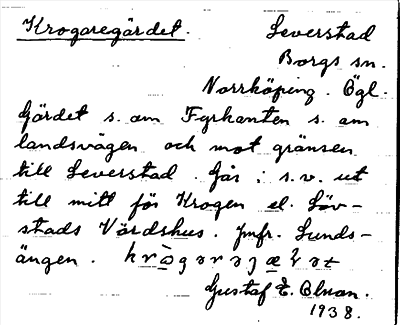 Krogaregärdet. Leverstad
Borgs sn.
Norrköping. Ögl.
Gärdet s. om Fyrkanten s. om
landsvägen och mot gränsen
till Leverstad. Går i s.v. ut
till mitt för Krogen el. Löv-
stads Värdshus. Jmfr. Lunds-
ängen.
Gustaf E. Olson.
1938.